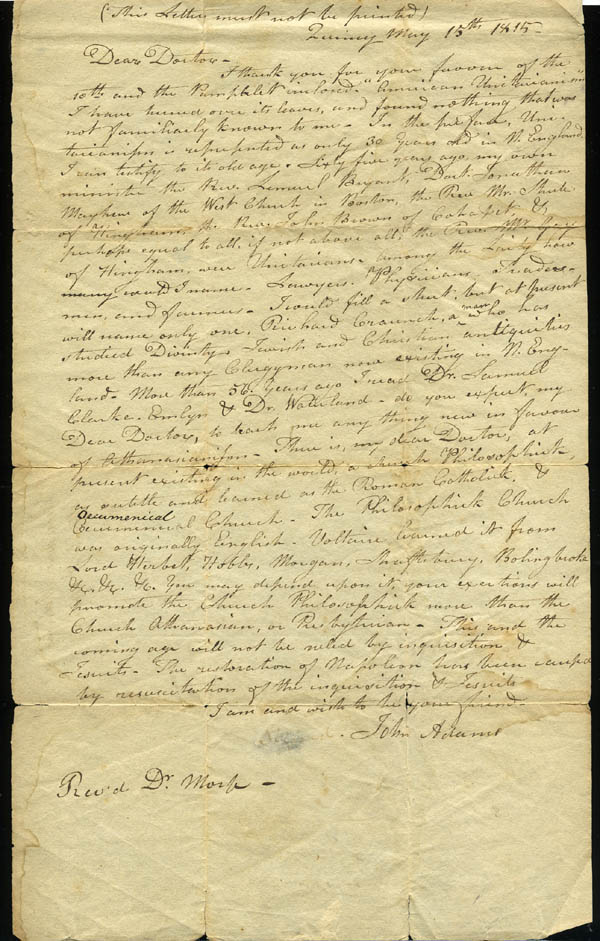 (This Letter must not be printed)
Quincy May 15th 1815—
Dear Doctor—
I thank you for your favour of the
10th and the Pamphlet inclosed "American Unitarianism"
I have turned over its leaves, and found nothing that was
not familiarly known to me— In the preface, Uni-
tarianism is represented as only 30 Years old in N. England
I can testify to its old age. Sixty five years ago my own
minister the Rev. Lemuel Bryant, Doct. Jonathan
Mayhew of the West Church in Boston, the Rev. Mr. Shute
of Hingham, the Rev. John Brown of Cohasset, &
perhaps equal to all, if not above all, the Rev. Mr. Gay
of Hingham, were Unitarians. among the Laity how
many could I name— Lawyers, Physicians, Trades-
men, and farmers— I could fill a sheet, but at present
will name only one, Richard Cranch, a man who has
studied Divinity & Jewish and Christian antiquities
more than any Clergyman now existing in N. Eng-
land— More than 56 years ago I read Dr. Samuel
Clarke, Emlyn & Dr. Waterland— do you expect, my
Dear Doctor, to teach me any thing new in favour
of Athanasianism— There is, my dear Doctor, at
present existing in the world, a church Philosophick,
as subtle and learned as the Roman Catholick, &
Oecumenical
Church— The Philosophick Church
was originally English— Voltaire learned it from
Lord Herbert, Hobbs, Morgan, Shaftsbury, Bolingbroke
&c. &c. &c. You may depend upon it, your exertions will
promote the Church Philosophick more than the
Church Athanasian, or Presbyterian— This and the
coming age will not be ruled by inquisition &
Jesuits— The restoration of Napoleon has been caused
by resuscitation of the inquisition & Jesuits
I am and wish to be your friend—
John Adams
Rev'd Dr. Morse—